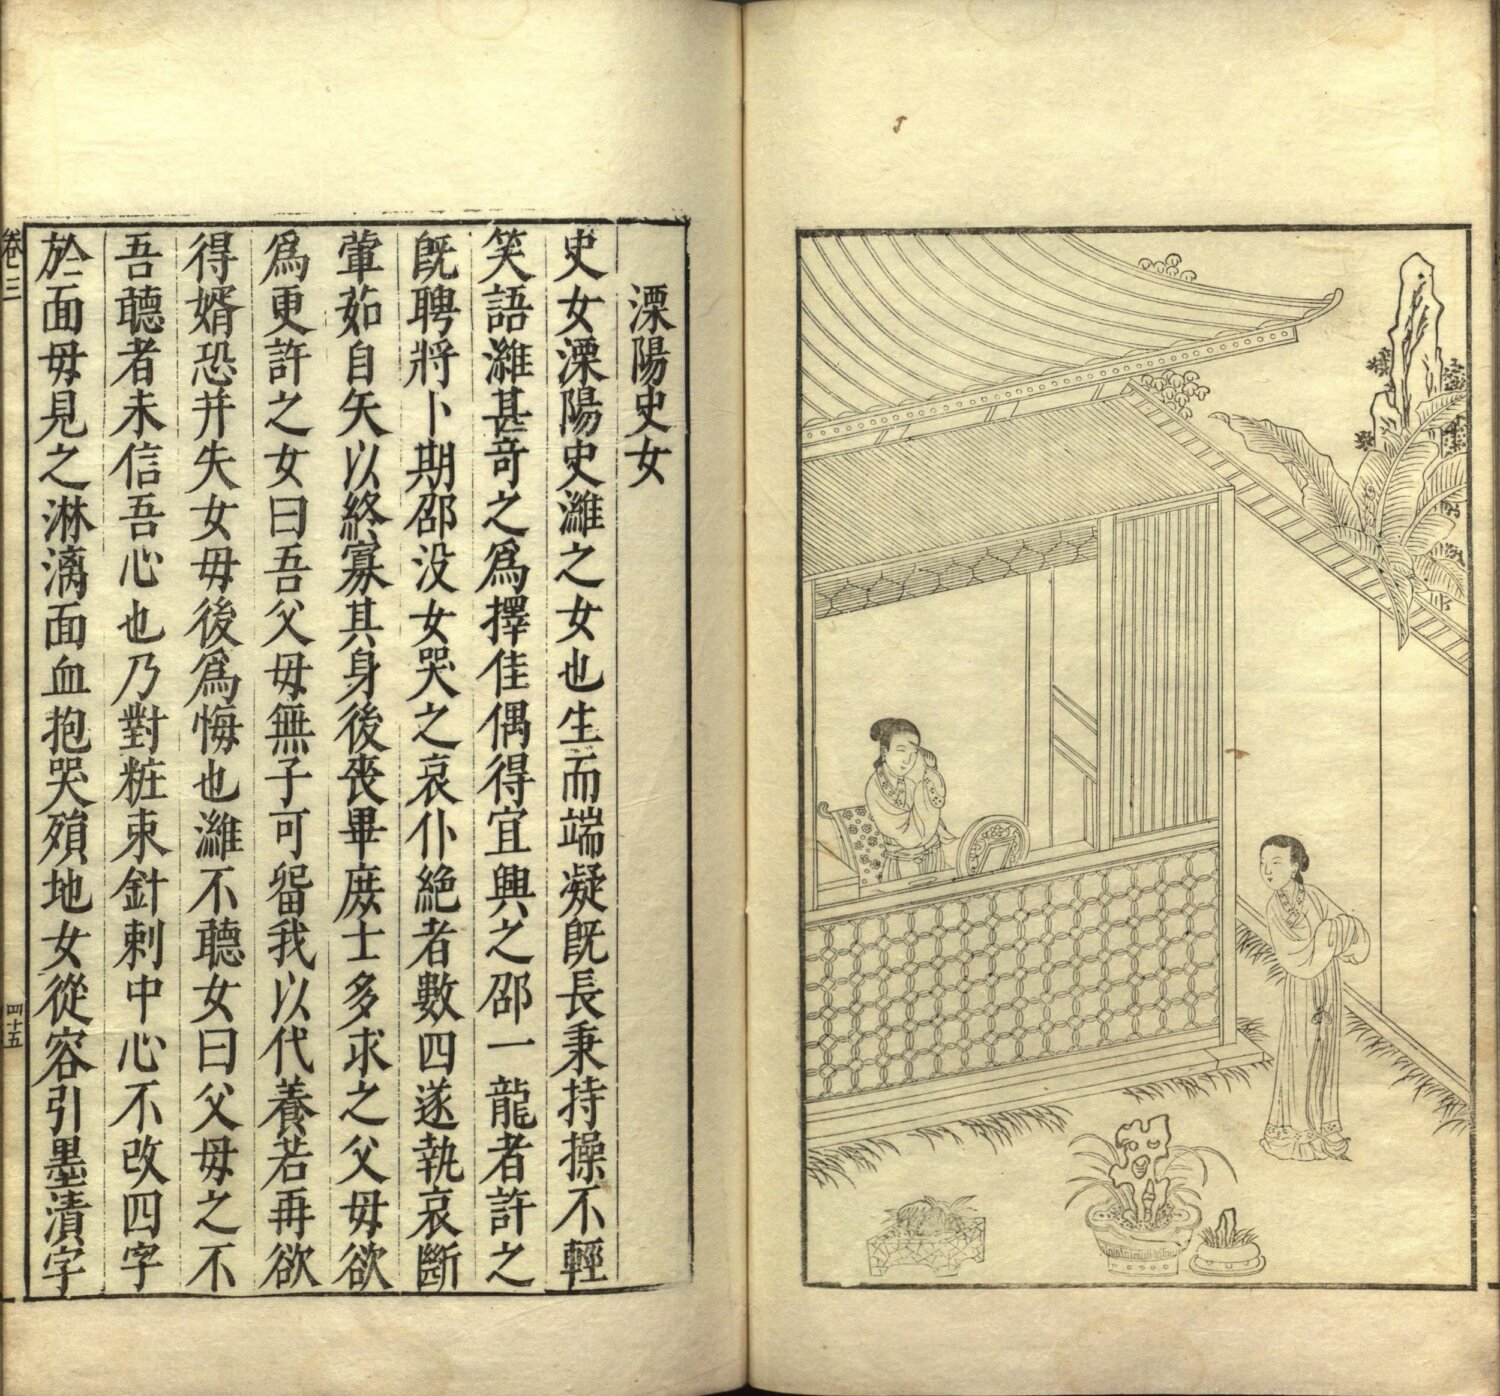 溧陽史女
史女溧陽史濰之女也生而端凝旣長秉持操不輕
笑語濰甚奇之爲擇佳偶得宜興之邵一龍者許之
旣聘將卜期邵没女哭之哀仆絶者數四遂執哀斷
葷茹自矢以終寡其身後喪畢庻士多求之父毋欲
爲更許之女曰吾父毋無子可畱我以代養若再欲
得婿恐并失女毋後爲悔也濰不聽女曰父毋之不
吾聽者未信吾心也乃對粧束針刺中心不改四字
於面毋見之淋漓面血抱哭殞地女從容引墨漬字
卷三
四十五